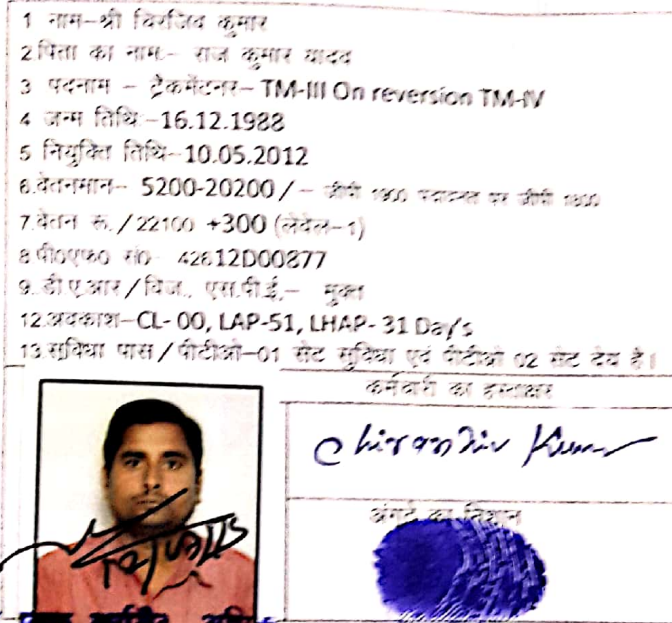 1 नाम–श्री चिरंजिव कुमार
2 पिता का नाम– राज कुमार यादव
3 पदनाम – ट्रैकमेंटनर– TM-III On reversion TM-IV
4 जन्म तिथि –16.12.1988
5 नियुक्ति तिथि–10.05.2012
6.वेतनमान– 5200-20200/– जीपी 1900 पदावनत पर जीपी 1800
7.वेतन रू./22100 +300 (लेवेल–1)
8 पी०एफ० सं० 42612D00877
9. डी.ए.आर/विज., एस.पी.ई.– मुक्त
12.अवकाश–CL- 00, LAP-51, LHAP- 31 Day's
13.सुविधा पास/पीटीओ–01 सेट सुविधा एवं पीटीओ 02 सेट देय है।
कर्मचारी का हस्ताक्षर
Chiranjiv Kumar
अंगूठे का निशान